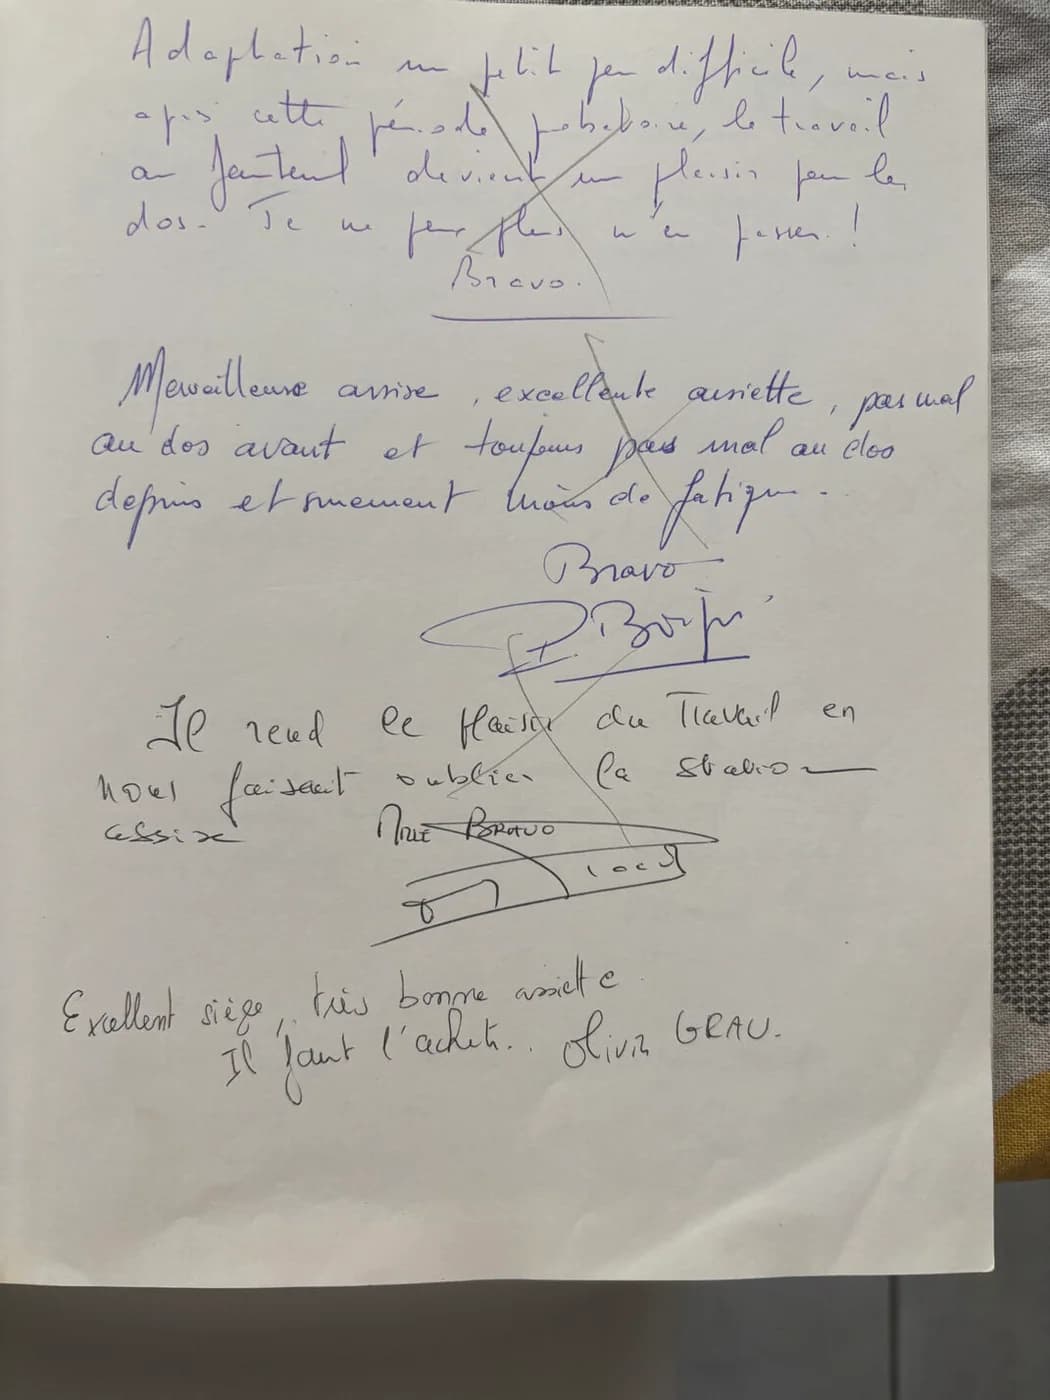 Adaptation un petit peu difficile, mais
après cette période probatoire, le travail
au fauteuil devient un plaisir pour le
dos. Je ne peux plus m'en passer !
Bravo.
Merveilleuse assise, excellente assiette, pas mal
au dos avant et toujours pas mal au dos
depuis et surement moins de fatigue.
Bravo
Il rend le plaisir du Travail en
nous faisant oublier la station
assise Mlle BRAVO
Excellent siège, très bonne assiette.
Il faut l'acheter.. Olivier GRAU.